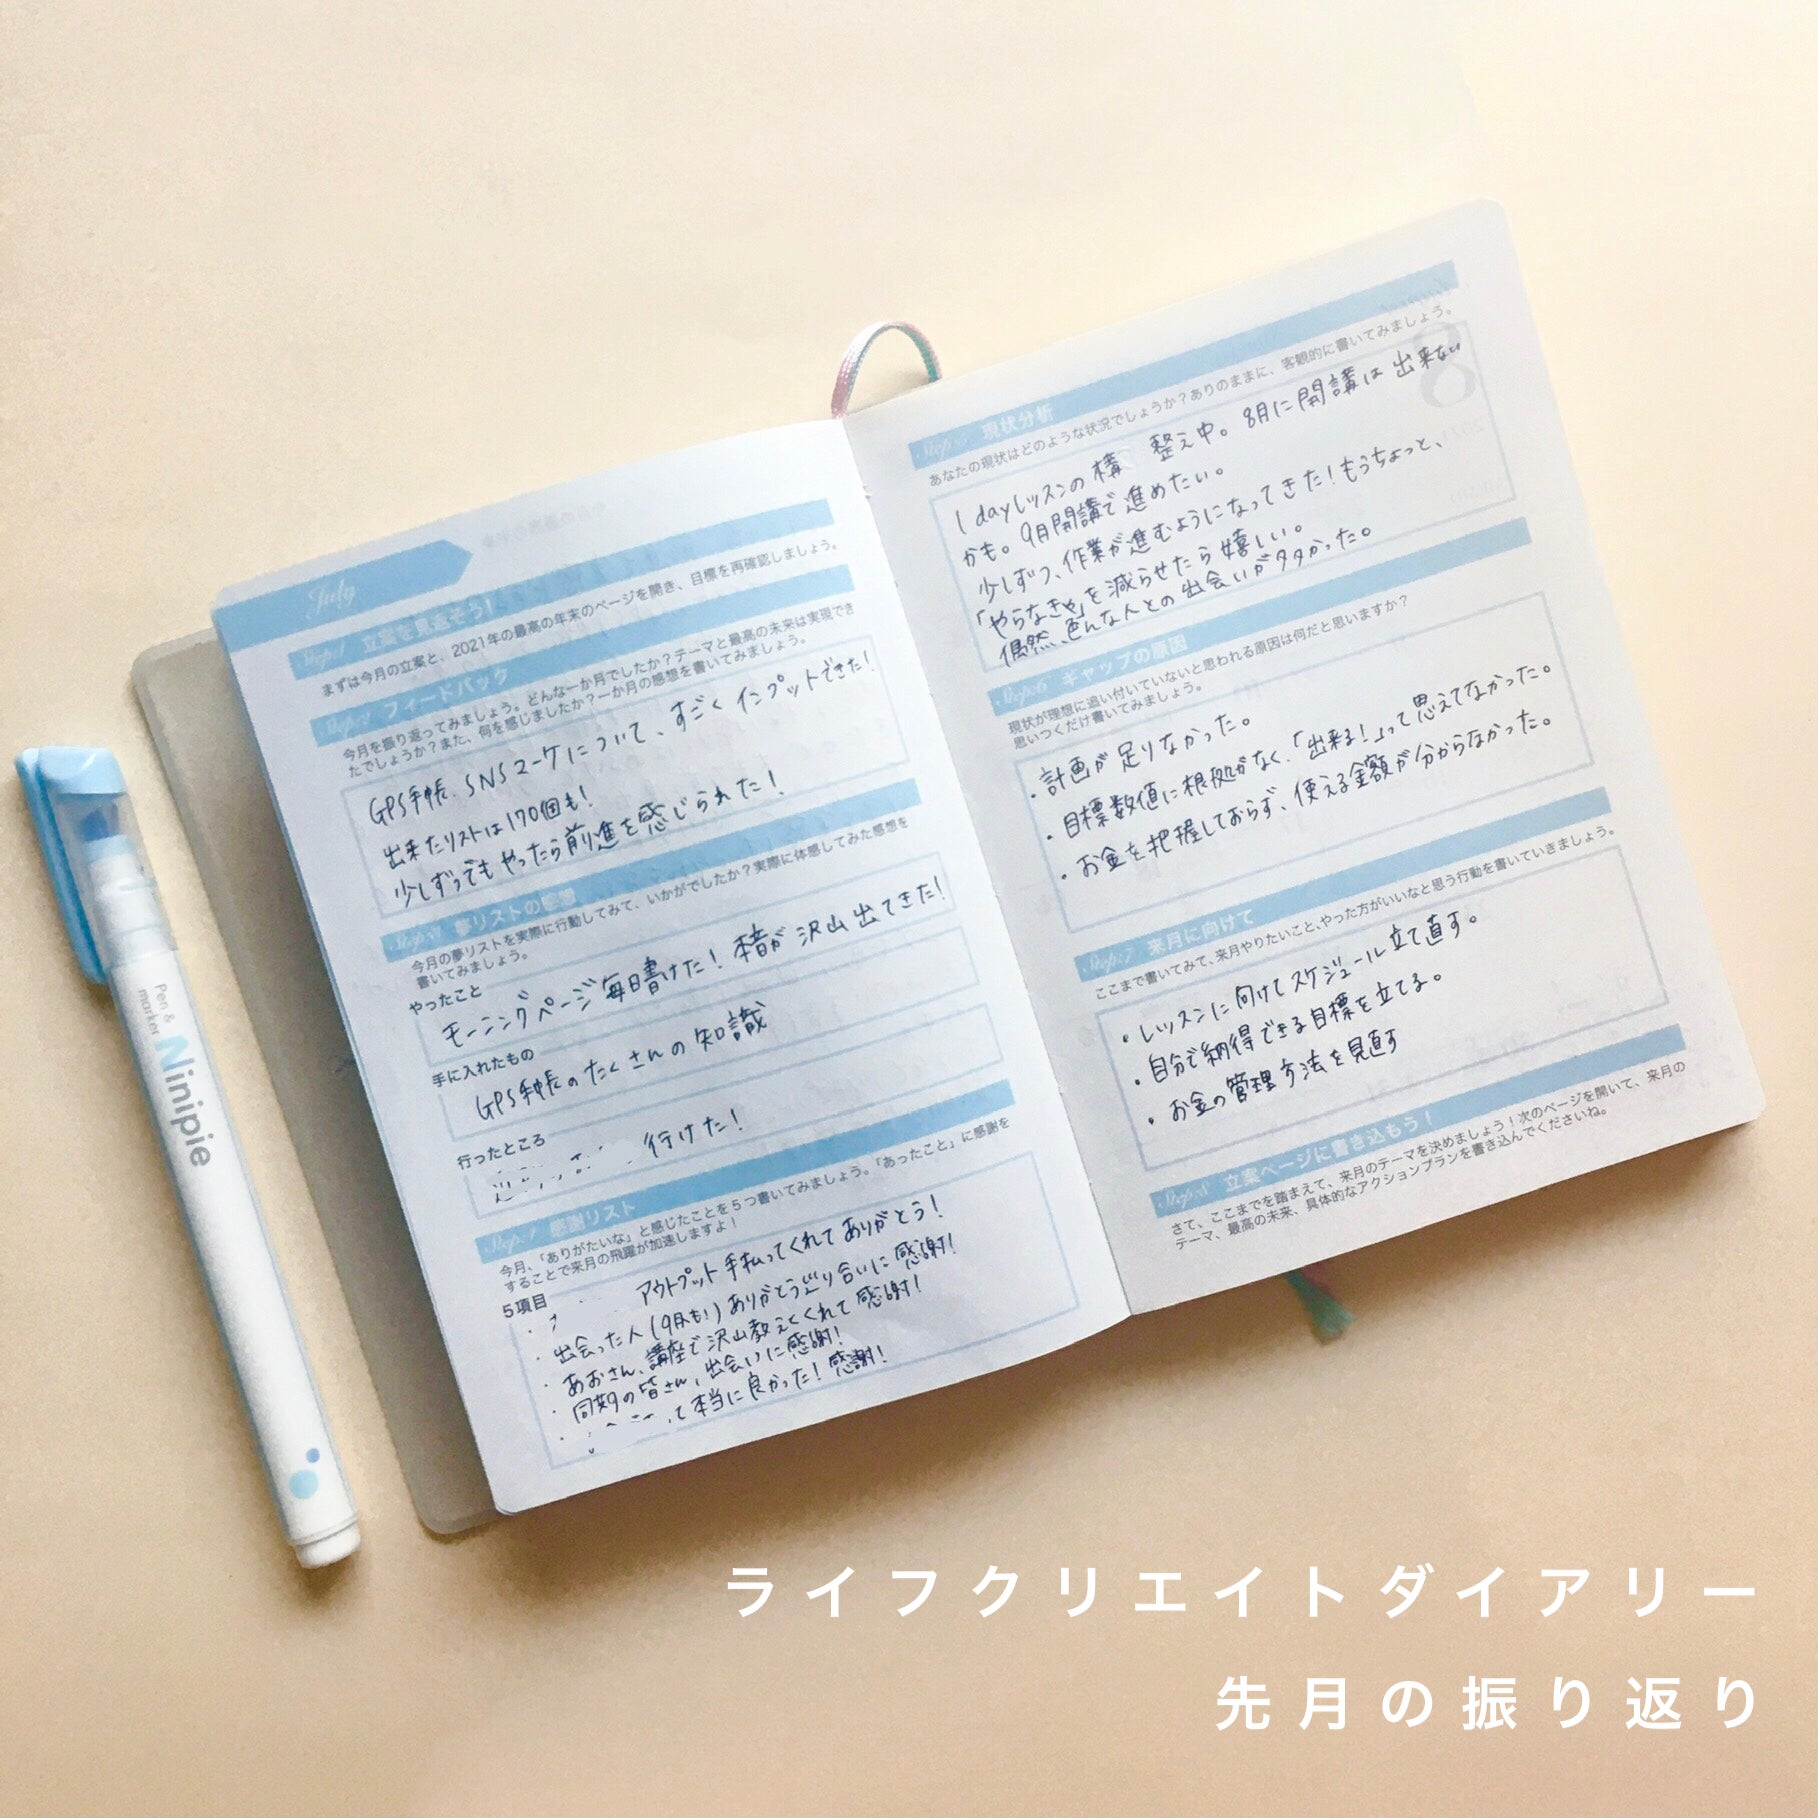 July
Step.1 立案を見返そう!
まずは今月の立案と、2021年の最高の年末のページを開き、目標を再確認しましょう。
Step.2 フィードバック
今月を振り返ってみましょう。どんな一か月でしたか?テーマと最高の未来は実現でき
たでしょうか?また、何を感じましたか?一か月の感想を書いてみましょう。
GPS手帳、SNSマーケについて、すごくインプットできた!
出来たリストは170個も!
少しずつでもやったら前進を感じられた!
Step.3 夢リストの感想
今月の夢リストを実際に行動してみて、いかがでしたか?実際に体感してみた感想を
書いてみましょう。
やったこと
モーニングページ毎日書けた!本音が沢山出てきた!
手に入れたもの
GPS手帳のたくさんの知識
行ったところ
行けた!
Step.4 感謝リスト
今月、「ありがたいな」と感じたことを5つ書いてみましょう。「あったこと」に感謝を
することで来月の飛躍が加速しますよ!
5項目
・ アウトプット手伝ってくれてありがとう!
・出会った人(9月も!)ありがとう 巡り合いに感謝!
・あおさん、講座で沢山教えてくれて感謝!
・同期の皆さん、出会いに感謝!
・ て本当に良かった!感謝!
Step.5 現状分析
あなたの現状はどのような状況でしょうか?ありのままに、客観的に書いてみましょう。
1dayレッスンの構 整え中。8月に開講は出来ない
かも。9月開講で進めたい。
少しずつ、作業が進むようになってきた!もうちょっと、
「やらなきゃ」を減らせたら嬉しい。
偶然、色んな人との出会いが多かった。
Step.6 ギャップの原因
現状が理想に追い付いていないと思われる原因は何だと思いますか?
思いつくだけ書いてみましょう。
・計画が足りなかった。
・目標数値に根拠がなく、「出来る!」って思えてなかった。
・お金を把握しておらず、使える金額が分からなかった。
Step.7 来月に向けて
ここまで書いてみて、来月やりたいこと、やった方がいいなと思う行動を書いていきましょう。
・レッスンに向けてスケジュール立て直す。
・自分で納得できる目標を立てる。
・お金の管理方法を見直す
Step.8 立案ページに書き込もう!
さて、ここまでを踏まえて、来月のテーマを決めましょう!次のページを開いて、来月の
テーマ、最高の未来、具体的なアクションプランを書き込んでくださいね。
Pen &
marker Ninipie
ライフクリエイトダイアリー
先月の振り返り